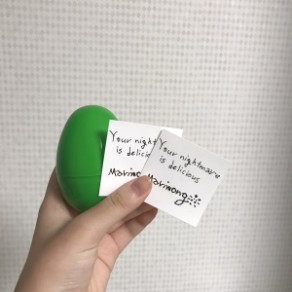 Your night
is delicio
Marino
Your nightmare
is delicious
Marinong